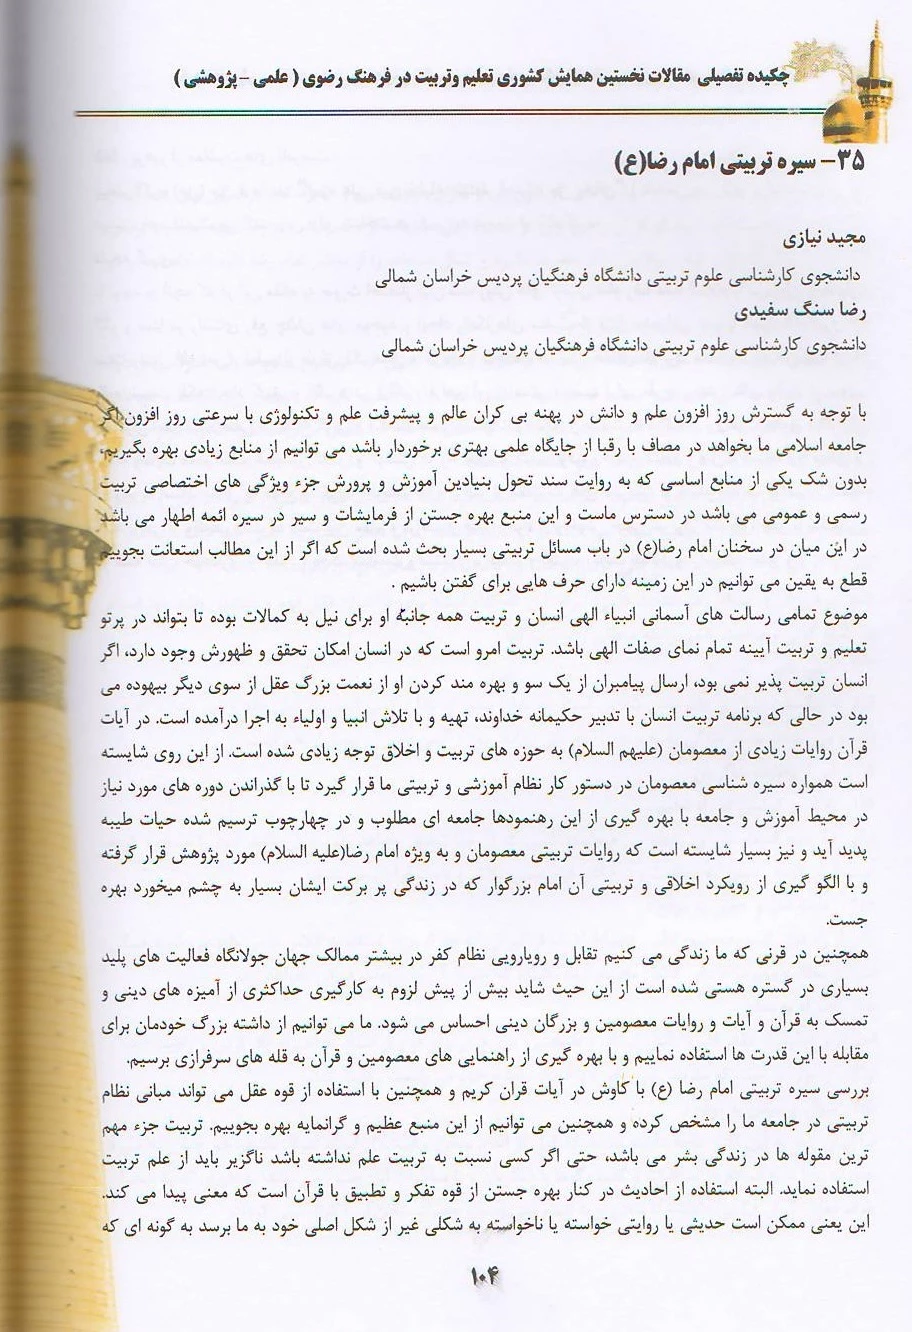 چکیده تفصیلی مقالات نخستین همایش کشوری تعلیم وتربیت در فرهنگ رضوی ( علمی - پژوهشی )
۳۵- سیره تربیتی امام رضا(ع)
مجید نیازی
دانشجوی کارشناسی علوم تربیتی دانشگاه فرهنگیان پردیس خراسان شمالی
رضا سنگ سفیدی
دانشجوی کارشناسی علوم تربیتی دانشگاه فرهنگیان پردیس خراسان شمالی
با توجه به گسترش روز افزون علم و دانش در پهنه بی کران عالم و پیشرفت علم و تکنولوژی با سرعتی روز افزون اگر
جامعه اسلامی ما بخواهد در مصاف با رقبا از جایگاه علمی بهتری برخوردار باشد می توانیم از منابع زیادی بهره بگیریم،
بدون شک یکی از منابع اساسی که به روایت سند تحول بنیادین آموزش و پرورش جزء ویژگی های اختصاصی تربیت
رسمی و عمومی می باشد در دسترس ماست و این منبع بهره جستن از فرمایشات و سیر در سیره ائمه اطهار می باشد
در این میان در سخنان امام رضا(ع) در باب مسائل تربیتی بسیار بحث شده است که اگر از این مطالب استعانت بجوییم
قطع به یقین می توانیم در این زمینه دارای حرف هایی برای گفتن باشیم .
موضوع تمامی رسالت های آسمانی انبیاء الهی انسان و تربیت همه جانبه او برای نیل به کمالات بوده تا بتواند در پرتو
تعلیم و تربیت آیینه تمام نمای صفات الهی باشد. تربیت امرو است که در انسان امکان تحقق و ظهورش وجود دارد، اگر
انسان تربیت پذیر نمی بود، ارسال پیامبران از یک سو و بهره مند کردن او از نعمت بزرگ عقل از سوی دیگر بیهوده می
بود در حالی که برنامه تربیت انسان با تدبیر حکیمانه خداوند، تهیه و با تلاش انبیا و اولیاء به اجرا درآمده است. در آیات
قرآن روایات زیادی از معصومان (علیهم السلام) به حوزه های تربیت و اخلاق توجه زیادی شده است. از این روی شایسته
است همواره سیره شناسی معصومان در دستور کار نظام آموزشی و تربیتی ما قرار گیرد تا با گذراندن دوره های مورد نیاز
در محیط آموزش و جامعه با بهره گیری از این رهنمودها جامعه ای مطلوب و در چهارچوب ترسیم شده حیات طیبه
پدید آید و نیز بسیار شایسته است که روایات تربیتی معصومان و به ویژه امام رضا(علیه السلام) مورد پژوهش قرار گرفته
و با الگو گیری از رویکرد اخلاقی و تربیتی آن امام بزرگوار که در زندگی پر برکت ایشان بسیار به چشم میخورد بهره
جست.
همچنین در قرنی که ما زندگی می کنیم تقابل و رویارویی نظام کفر در بیشتر ممالک جهان جولانگاه فعالیت های پلید
بسیاری در گستره هستی شده است از این حیث شاید بیش از پیش لزوم به کارگیری حداکثری از آمیزه های دینی و
تمسک به قرآن و آیات و روایات معصومین و بزرگان دینی احساس می شود. ما می توانیم از داشته بزرگ خودمان برای
مقابله با این قدرت ها استفاده نماییم و با بهره گیری از راهنمایی های معصومین و قرآن به قله های سرفرازی برسیم.
بررسی سیره تربیتی امام رضا (ع) با کاوش در آیات قران کریم و همچنین با استفاده از قوه عقل می تواند مبانی نظام
تربیتی در جامعه ما را مشخص کرده و همچنین می توانیم از این منبع عظیم و گرانمایه بهره بجوییم. تربیت جزء مهم
ترین مقوله ها در زندگی بشر می باشد، حتی اگر کسی نسبت به تربیت علم نداشته باشد ناگزیر باید از علم تربیت
استفاده نماید. البته استفاده از احادیث در کنار بهره جستن از قوه تفکر و تطبیق با قرآن است که معنی پیدا می کند.
این یعنی ممکن است حدیثی یا روایتی خواسته یا ناخواسته به شکلی غیر از شکل اصلی خود به ما برسد به گونه ای که
۱۰۴